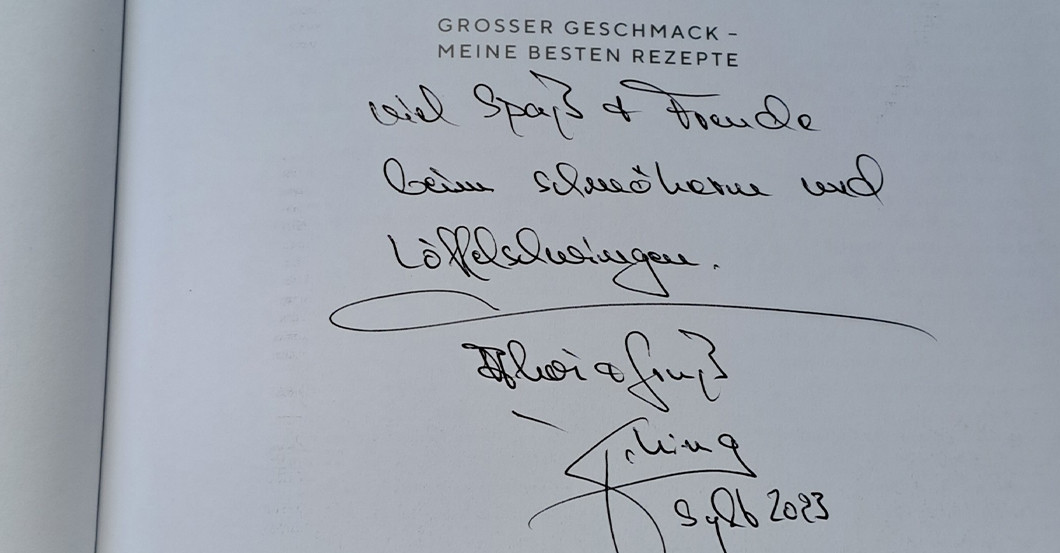 GROSSER GESCHMACK –
MEINE BESTEN REZEPTE
viel Spaß + Freude
beim schmökern und
Löffelschwingen.
Ahoi & Gruß
Sylt 2023